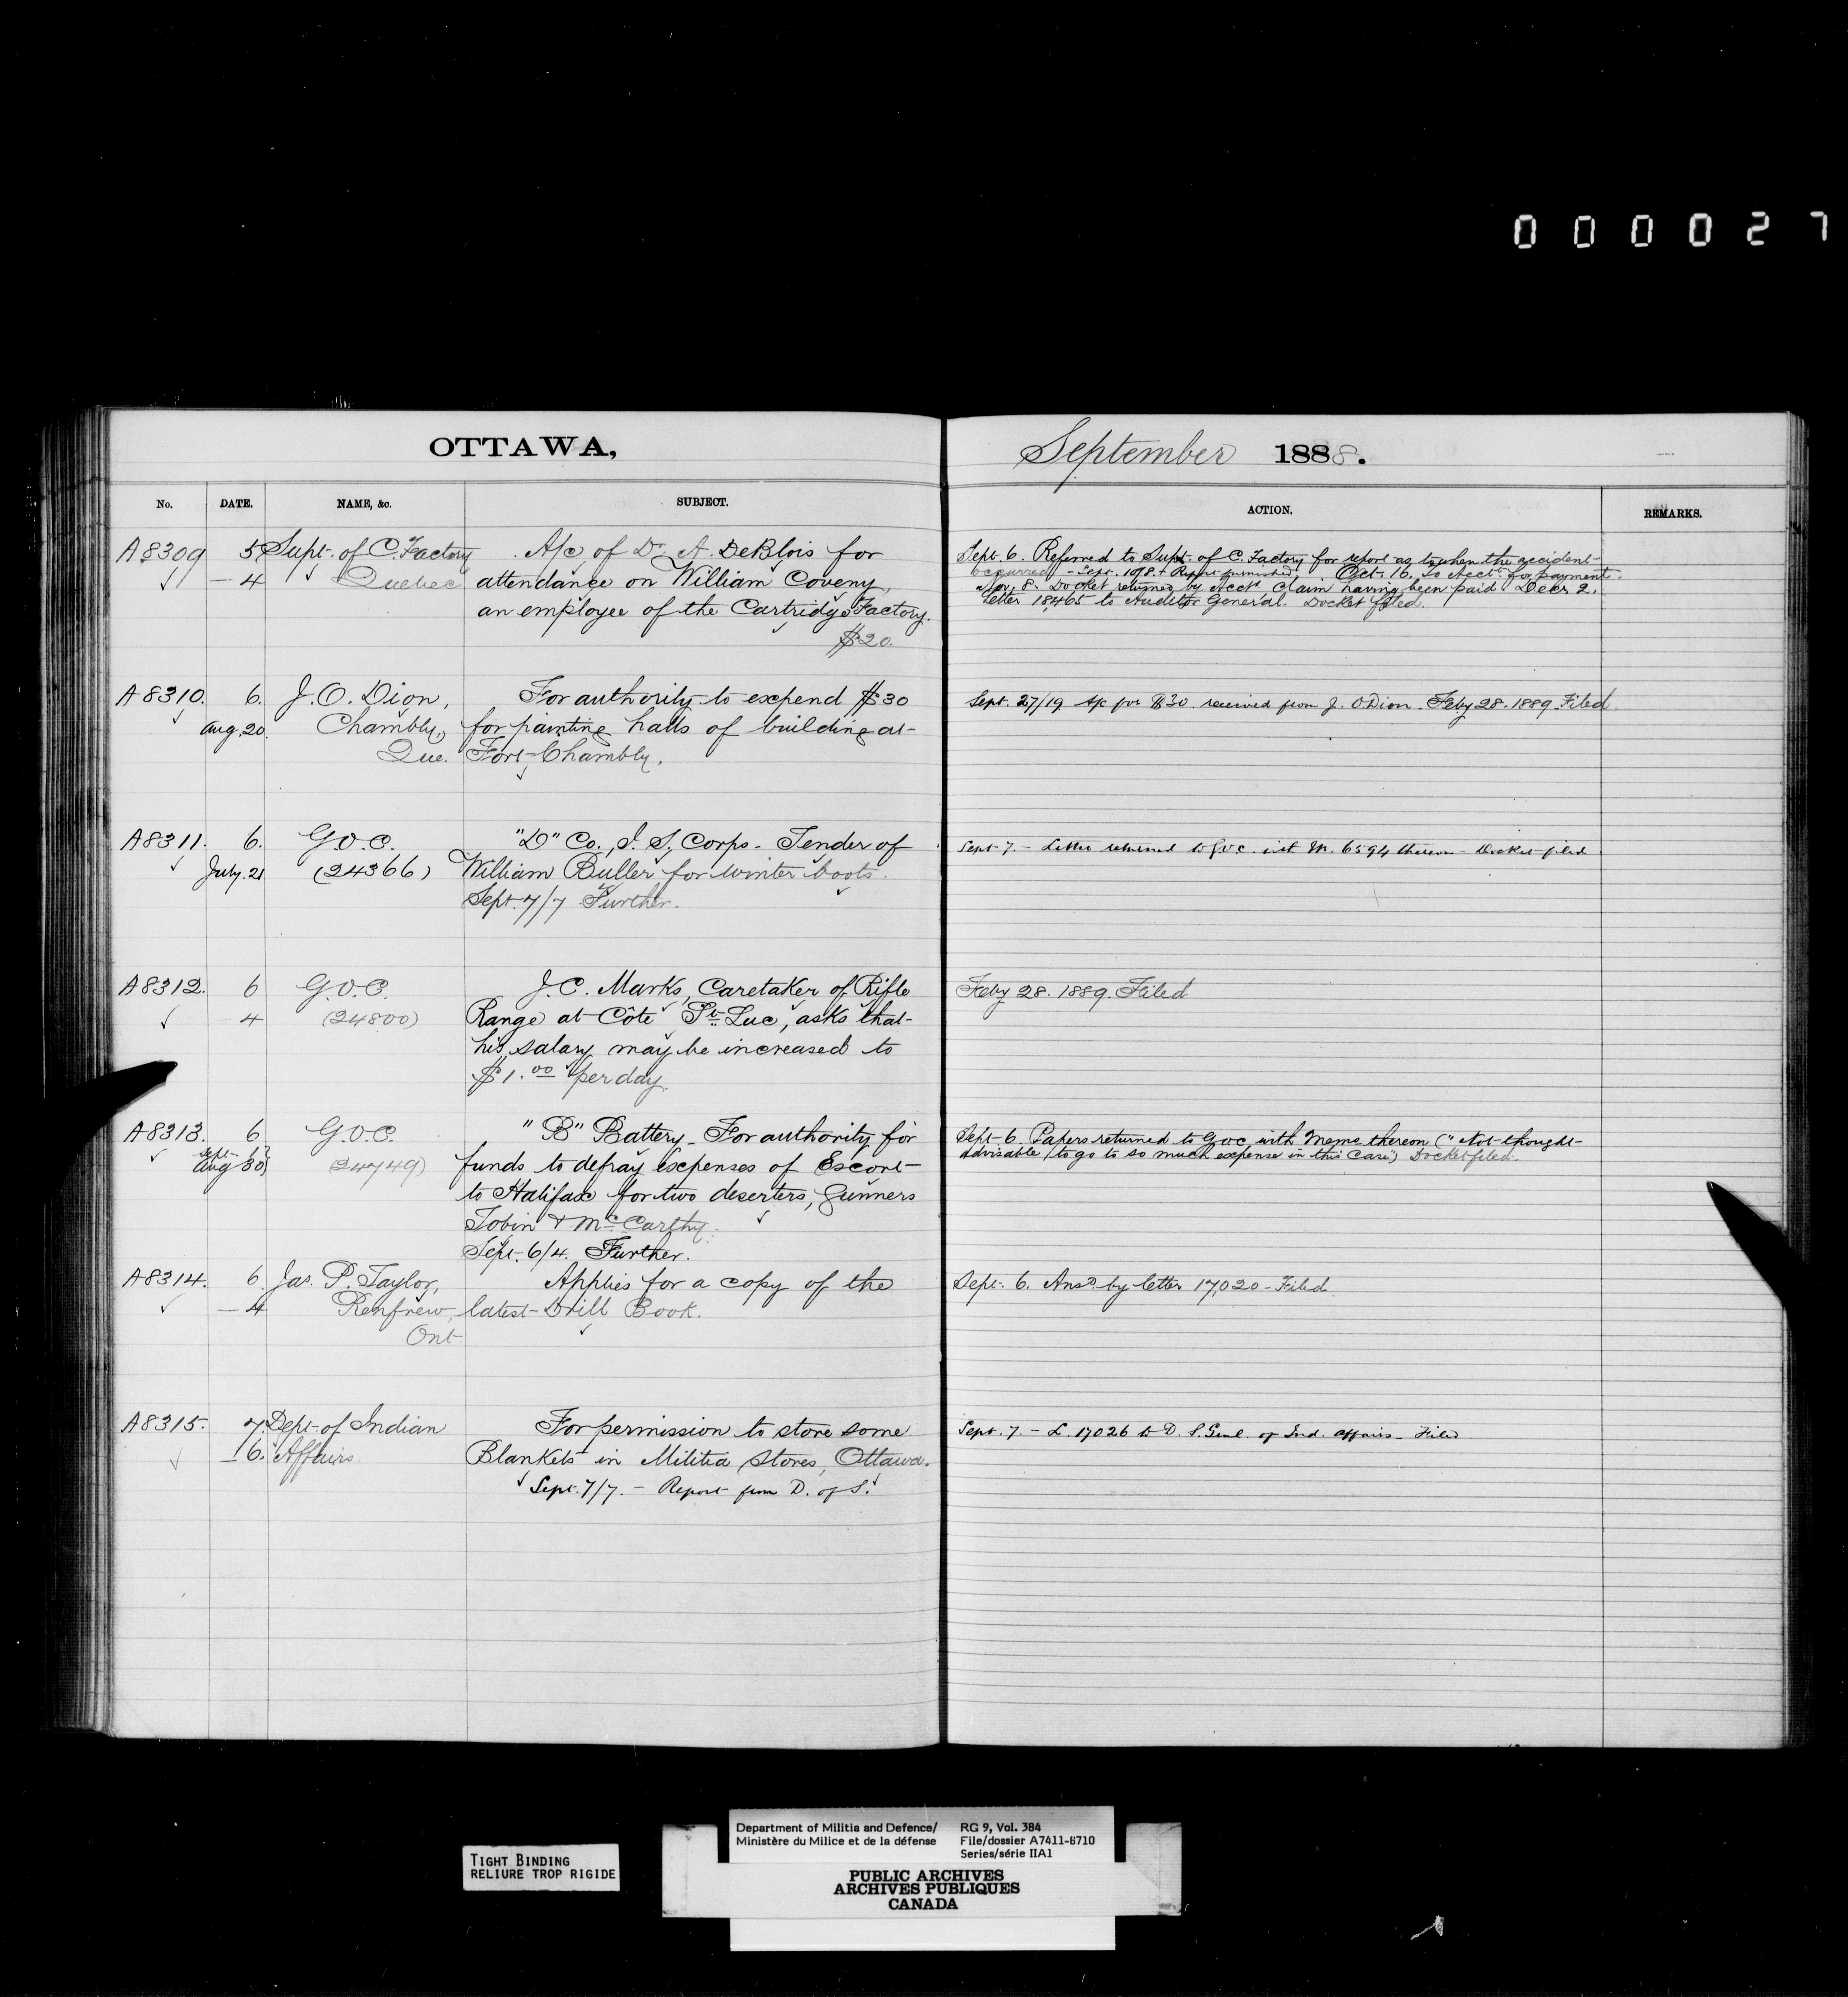 0 0 0 0 2 7
OTTAWA,
September 1888.
No. DATE. NAME, &c. SUBJECT. ACTION. REMARKS.
A8309 5 Supt. of C. Factory A/c of Dr. A. DeBlois for
— 4 Quebec attendance on William Coveny,
an employee of the Cartridge Factory.
$20.
Sept. 6. Referred to Supt. of C. Factory for report as to when the accident
occurred – Sept. Report furnished. Oct. 16. To Acct. for payment.
Nov. 8. Docket returned by Acct. Claim having been paid Decr 2.
Letter 18465 to Auditor General. Docket filed.
A8310. 6. J. O. Dion, For authority to expend $30
Aug. 20. Chambly, for painting halls of building at
Que. Fort Chambly.
Sept. 27/19 A/c for $30 received from J. O Dion. Feby 28. 1889. Filed
A8311. 6. G.O.C. "D" Co., I. S. Corps – Tender of
July. 21 (24366) William Buller for winter boots.
Sept. 7/7 Further.
Sept 7 – Letter returned to G.O.C. with M. 6594 thereon – Docket filed
A8312. 6 G.O.C. J. C. Marks, Caretaker of Rifle
— 4 (24800) Range at Côte St. Luc, asks that
his salary may be increased to
$1.00 per day.
Feby 28. 1889. Filed
A8313. 6 G.O.C. "B" Battery – For authority for
Sept. 1
Aug 30 24749) funds to defray expenses of Escort
to Halifax for two deserters, Gunners
Tobin & McCarthy.
Sept. 6/4. Further.
Sept. 6. Papers returned to G.O.C. with Memo thereon ("Not thought
advisable to go to so much expense in this case") Docket filed.
A8314. 6 Jas. P. Taylor, Applies for a copy of the
— 4 Renfrew, latest Drill Book.
Ont.
Sept. 6. Ansd by letter 17,020 – Filed
A8315. 7. Dept. of Indian For permission to store some
6. Affairs Blankets in Militia Stores, Ottawa.
Sept. 7/7. – Report from D. of S.
Sept. 7. – L. 17026 to D. S. Genl. of Ind. Affairs – Filed
TIGHT BINDING
RELIURE TROP RIGIDE
Department of Militia and Defence/
Ministère du Milice et de la défense
RG 9, Vol. 384
File/dossier A7411-8710
Series/série IIA1
PUBLIC ARCHIVES
ARCHIVES PUBLIQUES
CANADA